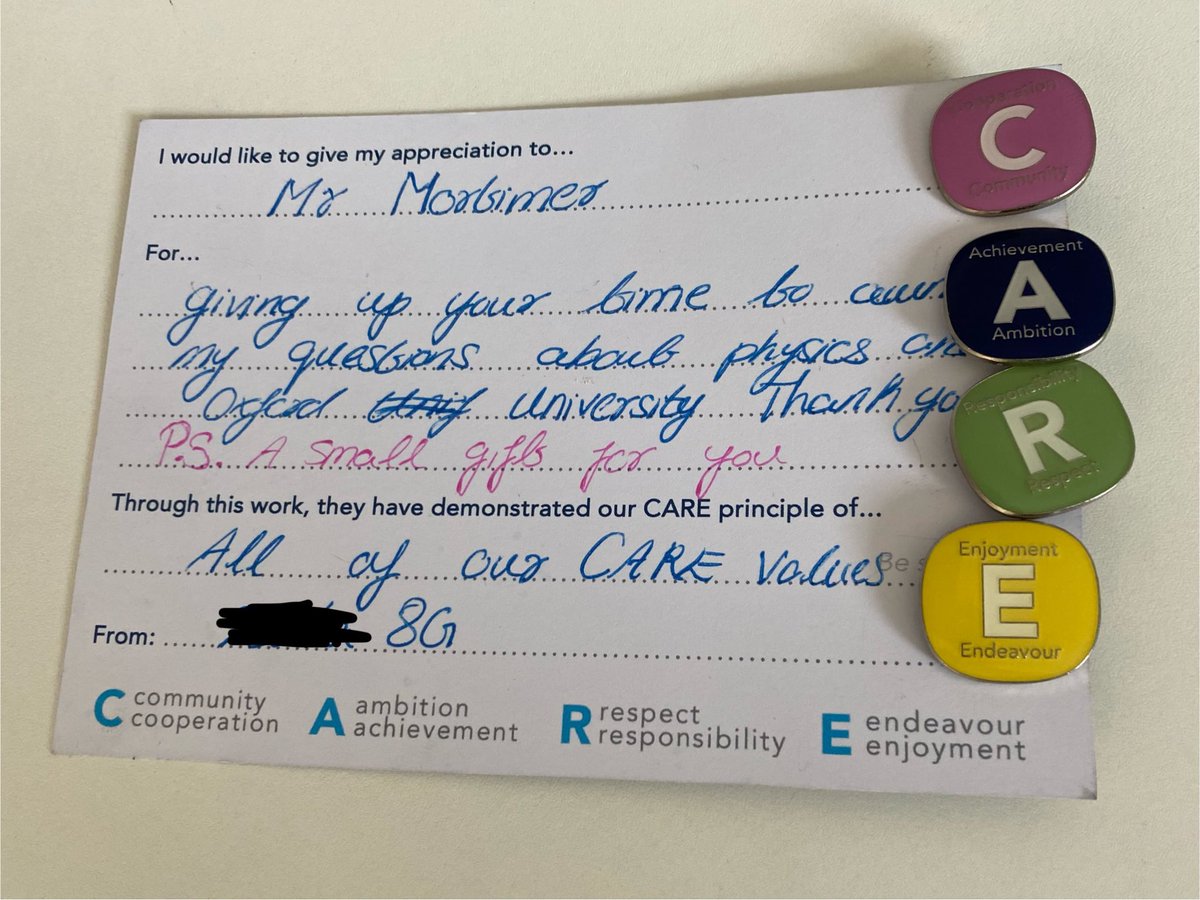 I would like to give my appreciation to...
Mr Mortimer
For...
giving up your time to
my questions about physics
Oxford University Thank
P.S. A small gifts for you
Through this work, they have demonstrated our CARE principle of...
All of our CARE values
From: 8G
C community cooperation
A ambition achievement
R respect responsibility
E endeavour enjoyment
Cooperation
C
Community
Achievement
A
Ambition
Responsibility
R
Respect
Enjoyment
E
Endeavour